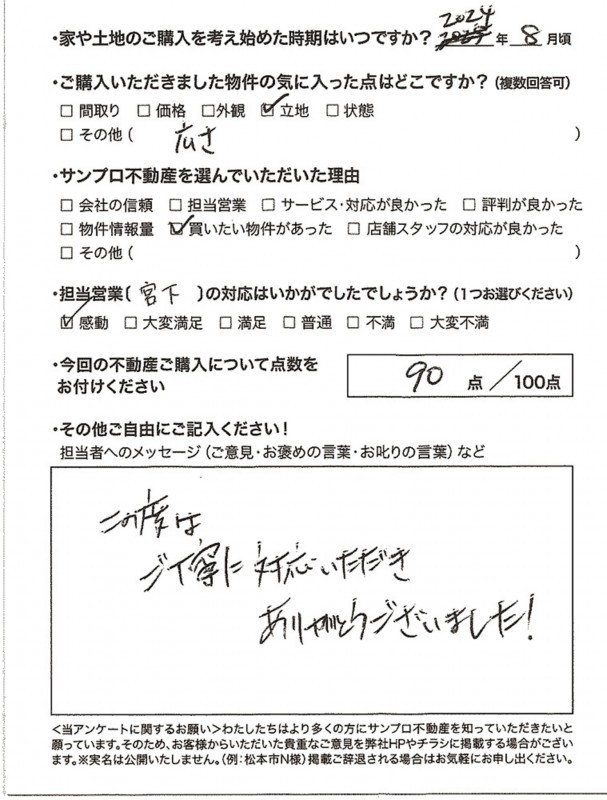 2024
・家や土地のご購入を考え始めた時期はいつですか? 年 8 月頃
・ご購入いただきました物件の気に入った点はどこですか?(複数回答可)
□ 間取り □ 価格 □外観 ☑ 立地 □ 状態
□ その他( 広さ )
・サンプロ不動産を選んでいただいた理由
□ 会社の信頼 □ 担当営業 □ サービス・対応が良かった □ 評判が良かった
□ 物件情報量 ☑ 買いたい物件があった □ 店舗スタッフの対応が良かった
□ その他( )
・担当営業〔 宮下 〕の対応はいかがでしたでしょうか?(1つお選びください)
☑ 感動 □ 大変満足 □ 満足 □ 普通 □ 不満 □ 大変不満
・今回の不動産ご購入について点数を
お付けください
90 点 / 100点
・その他ご自由にご記入ください!
担当者へのメッセージ(ご意見・お褒めの言葉・お叱りの言葉)など
この度は
ご丁寧に対応いただき
ありがとうございました!
<当アンケートに関するお願い>わたしたちはより多くの方にサンプロ不動産を知っていただきたいと
願っています。そのため、お客様からいただいた貴重なご意見を弊社HPやチラシに掲載する場合がござい
ます。※実名は公開いたしません。(例:松本市N様)掲載ご辞退される場合はお気軽にお申し出ください。